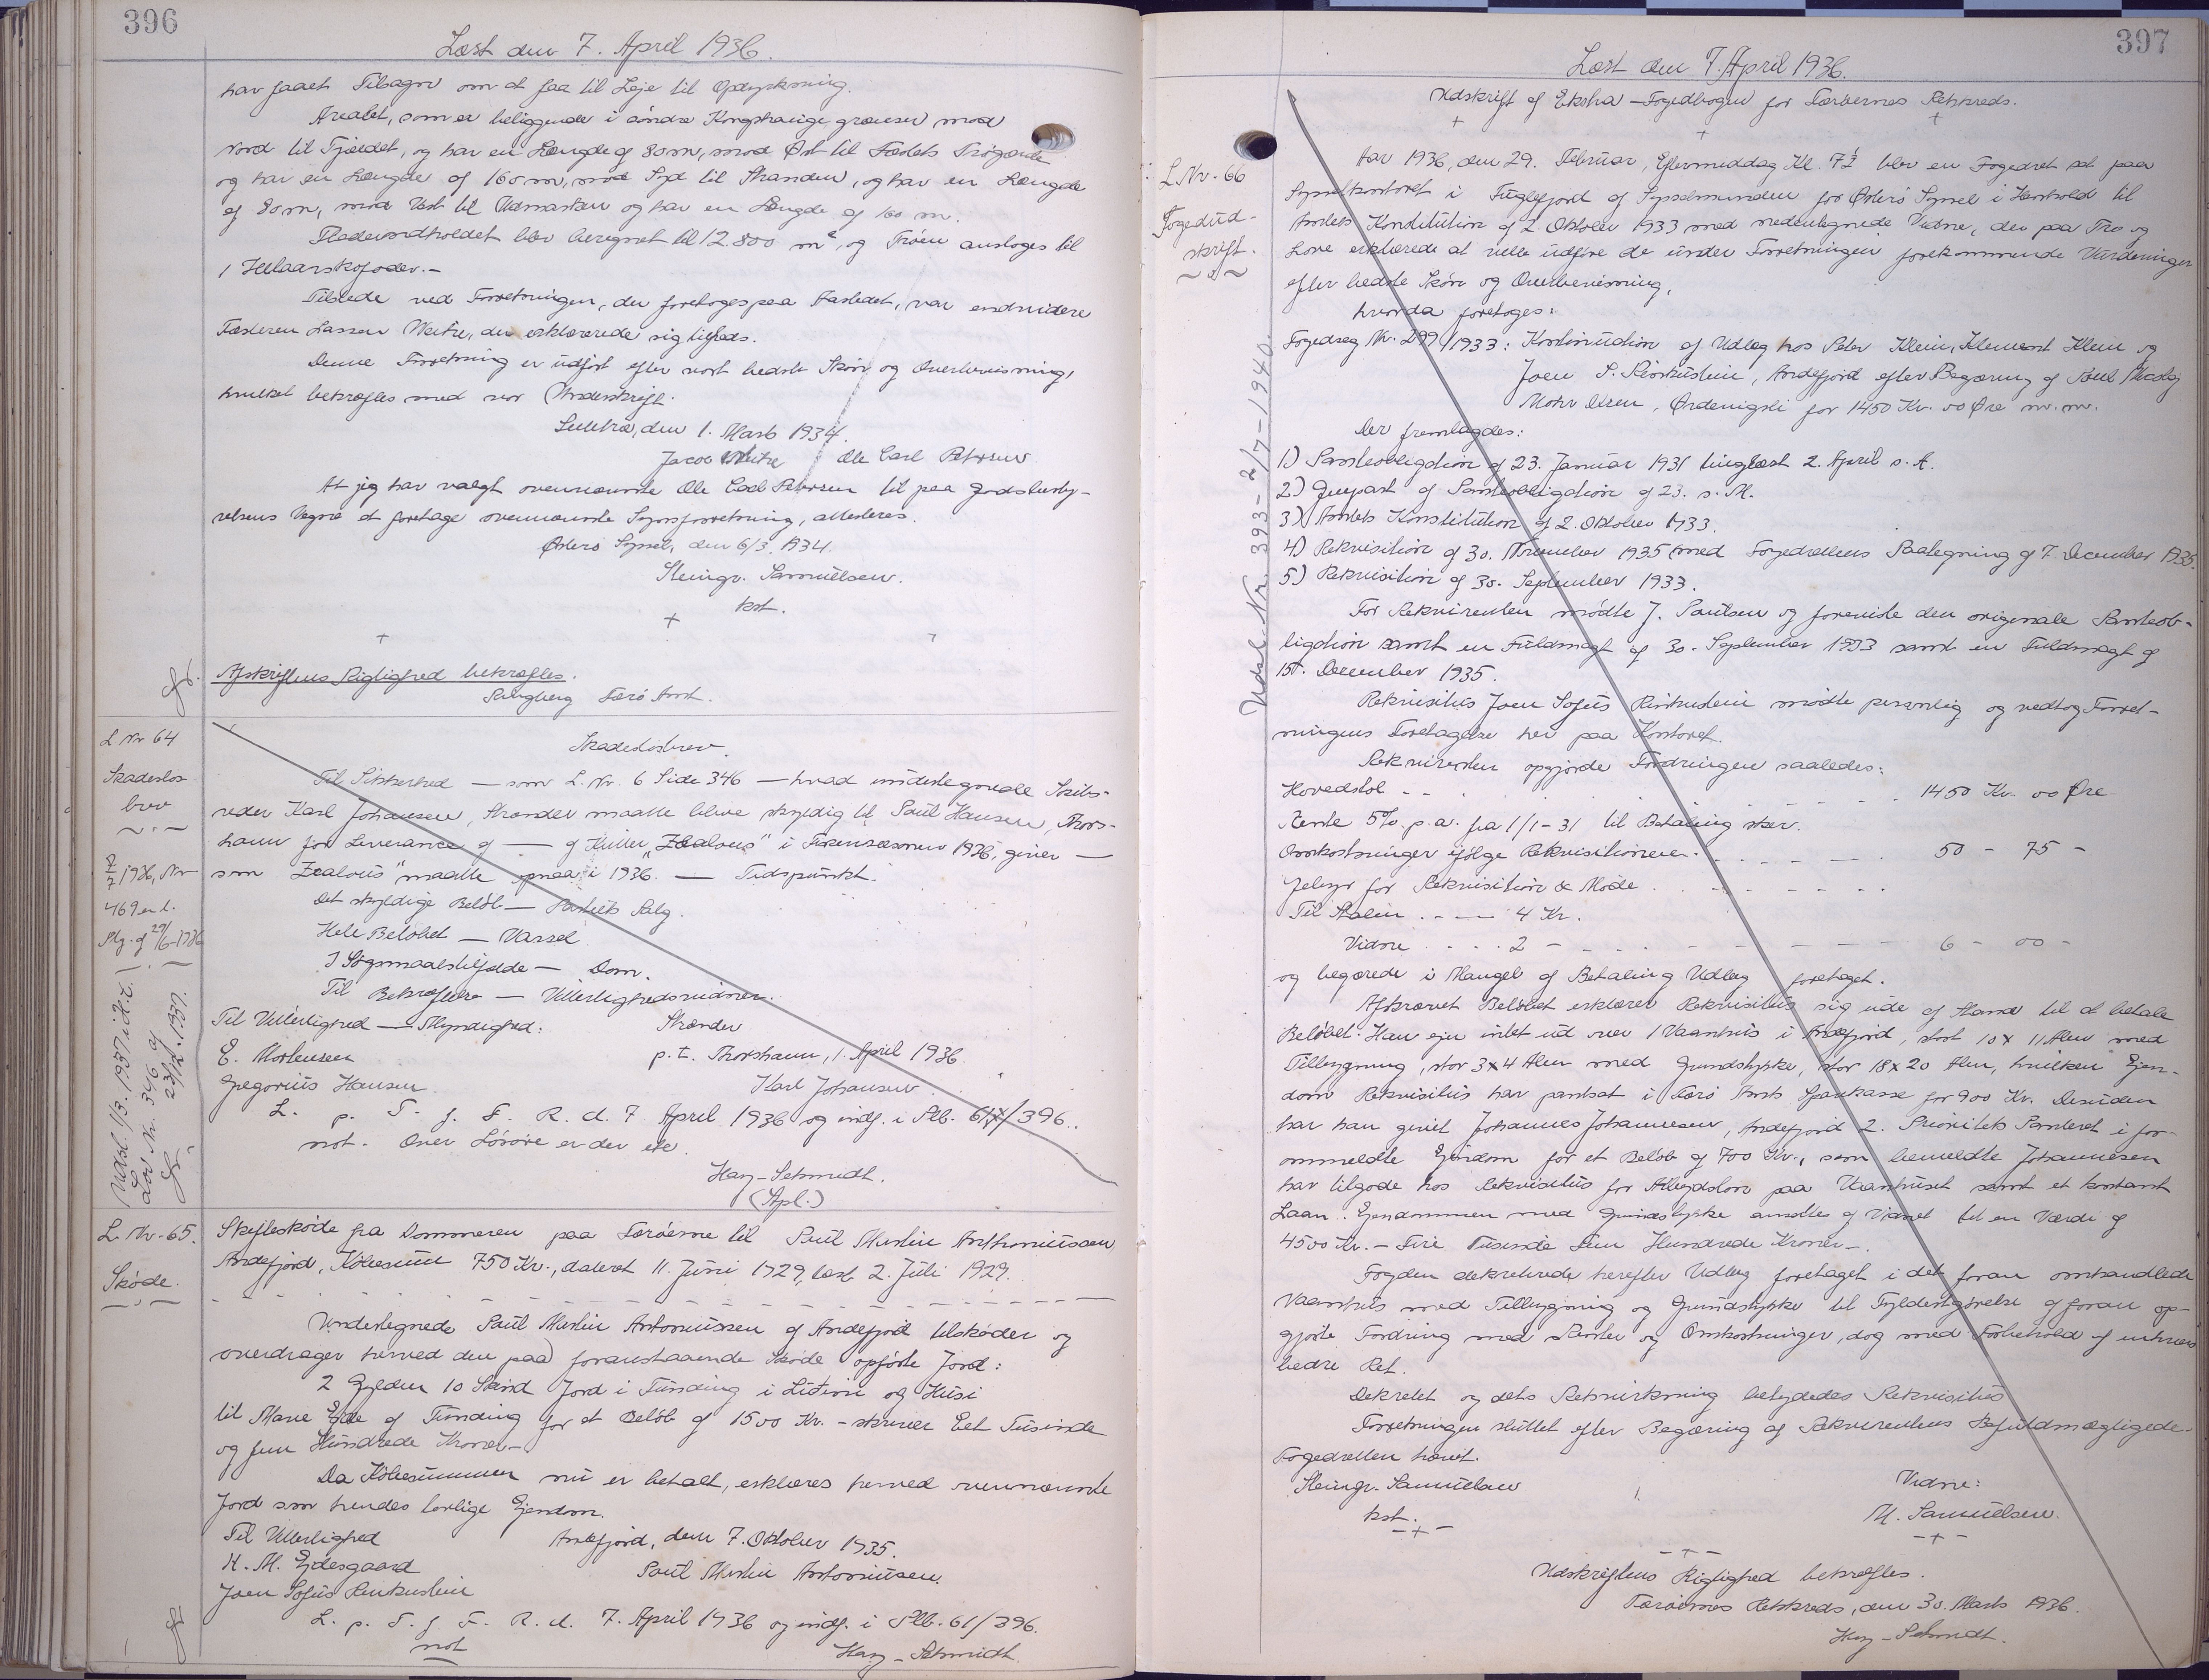 396
Læst den 7. April 1936.
har faaet Tilsagn om at faa til Leje til Opdyrkning.
Arealet, som er beliggende i søndre Kongshauge grænser mod
Nord til Fjældet, og har en Længde af 80 m, mod Øst til
og har en Længde af 160 m, mod Syd til Stranden, og har en Længde
af 80 m, mod Vest til Udmarken og har en Længde af 160 m.
Fladeindholdet blev beregnet til 12.800 m², og Trøen ansloges til
1 Helaarskofoder.-
Tilstede ved Forretningen, der foretoges paa Aastedet, var endvidere
Fæsteren Lassen Weihe, der erklærede sig tilfreds.
Denne Forretning er udført efter vort bedste Skøn og Overbevisning,
hvilket bekræftes med vor Underskrift.
Selletræ, den 1. Marts 1934.
Jacob Weihe Ole Carl Petersen
At jeg har valgt ovennævnte Ole Carl Petersen til paa Jordsbesty-
relsens Vegne at foretage ovennævnte Synsforretning, attesteres.
Østerø Syssel, den 6/3. 1934.
Steingr. Samuelsen.
kst.
Afskriftens Rigtighed bekræftes.
Ringberg Færø Amt.
L Nr 64
Skadesløs
brev
2/7 1936, Nr
469 en l.
Skg. af 29/6-1936
Udsl. 1/3. 1937 i H.t.
Lov Nr. 346 af
23/12. 1937.
Skadesløsbrev.
Til Sikkerhed — som L. Nr. 6 Side 346 — hvad undertegnede Skibs-
reder Karl Johansen, Strænder maatte blive skyldig til Poul Hansen, Thors-
havn for Leverance af — af Kutter "Zealous" i Fiskersæsonen 1936, giver —
som "Zealous" maatte opnaa i 1936. — Tidspunkt.
Det skyldige Beløb — Skibets Salg.
Hele Beløbet — Varsel.
I Søgsmaalstilfælde — Dom.
Til Bekræftelse — Vitterlighedsvidner.
Til Vitterlighed — Myndighed: Strænder
E. Mortensen p.t. Thorshavn, 1. April 1936.
Gregorius Hansen. Karl Johansen.
L. p. T. f. F. R. d. 7 April 1936 og indf. i Plb. 61/396.
not. Over Løsøre er der ete.
Hay-Schmidt.
(Apl.)
L. Nr-65.
Skøde.
Skifteskøde fra Dommeren paa Færøerne til Poul Martin Anthoniussen
Andefjord, Købesum 750 Kr., dateret 11. Juni 1929, læst 2. Juli 1929.
Undertegnede Poul Martin Antoniussen af Andefjord tilskøder og
overdrager herved den paa foranstaaende Skøde opførte Jord:
2 Gylden 10 Skind Jord i Funding i Lidini og Húsi
til Marie Eide af Funding for et Beløb af 1500 Kr. - skriver Eet Tusinde
og fem Hundrede Kroner.-
Da Købesummen nu er betalt, erklæres herved ovennævnte
Jord som hendes lovlige Ejendom.
Til Vitterlighed Andefjord, den 7. Oktober 1935.
H. M. Ejdesgaard Poul Martin Antoniussen.
Joen Sofus Rinkustein
L. p. T. f. F. R. d. 7. April 1936 og indf. i Plb. 61/396.
not Hay-Schmidt.
397
Læst den 7. April 1936.
Udskrift af Ekstra-Fogedbogen for Færøernes Retskreds.
L Nr-66
Fogedud-
skrift.
Udsl. Nr. 393-2/7-1940.
Aar 1936, den 29. Februar, Eftermiddag Kl. 7½ blev en Fogedret sat paa
Sysselkontoret i Fuglefjord af Sysselmanden for Østerø Syssel i Henhold til
Amtets Konstitution af 2. Oktober 1933 med nedentegnede Vidne, der paa Tro og
Love erklærede at ville udføre de under Forretningen forekommende Vurderinger
efter bedste Skøn og Overbevisning,
hvorda foretoges:
Fogedsag Nr. 299/1933: Kontinuation af Udlæg hos Peter Klein, Klement Klein og
Joen S. Rinkustein, Andefjord efter Begæring af Poul Nicolaj
Mohr Olsen, Ørdevigsli for 1450 Kr. 00 Øre m.m.
Der fremlagdes:
1) Panteobligation af 23. Januar 1931 tinglæst 2. April s. A.
2) Genpart af Panteobligation af 23. s. M.
3) Amtets Konstitution af 2. Oktober 1933.
4) Rekvisition af 30. November 1935 med Fogedrettens Paategning af 7. December 1935.
5) Rekvisition af 30. September 1933.
For Rekvirenten mødte J. Poulsen og foreviste den originale Panteob-
ligation samt en Fuldmagt af 30. September 1933 samt en Fuldmagt af
15. December 1935.
Rekvisitus Joen Sofus Rinkustein mødte personlig og vedtog Forret-
ningens Foretagelse her paa Kontoret.
Rekvirenten opgjorde Fordringen saaledes:
Hovedstol - - 1450 Kr. 00 Øre
Rente 5% p.a. fra 1/1-31 til Betaling sker.
Omkostninger ifølge Rekvisitionen. 50 - 75 -
Gebyr for Rekvisition & Møde
Til Staten . - — 4 Kr.
Vidne . . . . 2 - 6 - 00 -
og begærede i Mangel af Betaling Udlæg foretaget.
Afkrævet Beløbet erklærer Rekvisitus sig ude af Stand til at betale
Beløbet. Han ejer intet ud over 1 Vaanhus i Andefjord, stort 10 x 11 Alen med
Tilbygning, stor 3x4 Alen med Grundstykke, stor 18 x 20 Alen, hvilken Ejen-
dom Rekvisitus har pantsat i Færø Amts Sparekasse for 900 Kr. Desuden
har han givet Johannes Johannesen, Andefjord 2. Prioritets Panteret i for-
ommeldte Ejendom for et Beløb af 700 Kr., som bemeldte Johannesen
har tilgode hos Rekvisitus for Arbejdsløn paa Vaanhuset samt et kontant
Laan. Ejendommen med Grundstykke ansættes af Vidnet til en Værdi af
4500 Kr. - Fire Tusinde Fem Hundrede Kroner-.
Fogden dekreterede herefter Udlæg foretaget i det foran omhandlede
Vaanhus med Tilbygning og Grundstykke til Fyldestgørelse af foran op-
gjorte Fordring med Renter og Omkostninger, dog med Forbehold af enhvers
bedre Ret.
Dekretet og dets Retsvirkning betydedes Rekvisitus
Forretningen sluttet efter Begæring af Rekvirentens Befuldmægtigede.
Fogedretten hævet.
Steingr. Samuelsen Vidne:
kst. M. Samuelsen.
Udskriftens Rigtighed bekræftes.
Færøernes Retskreds, den 30. Marts 1936.
Hay-Schmidt.